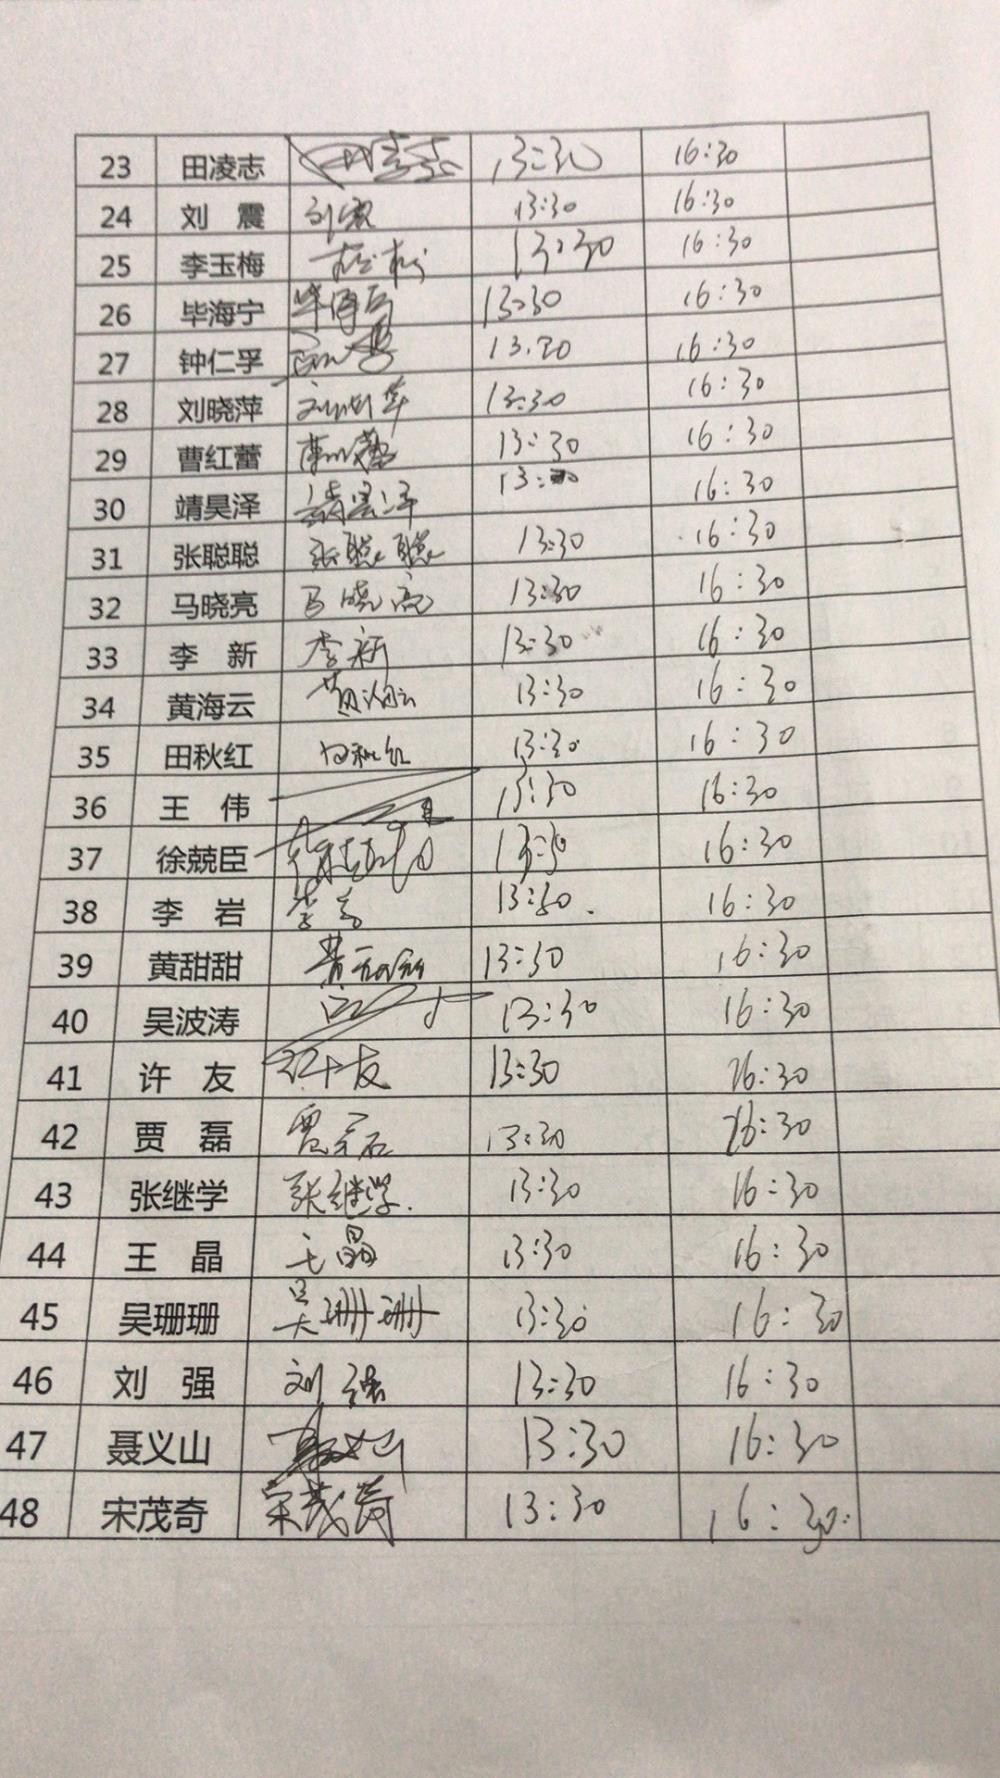 23 田凌志 13:30 16:30
24 刘 震 刘震 13:30 16:30
25 李玉梅 13:30 16:30
26 毕海宁 毕海宁 13:30 16:30
27 钟仁孚 13:30 16:30
28 刘晓萍 刘晓萍 13:30 16:30
29 曹红蕾 曹红蕾 13:30 16:30
30 靖昊泽 靖昊泽 13:30 16:30
31 张聪聪 张聪聪 13:30 16:30
32 马晓亮 马晓亮 13:30 16:30
33 李 新 李新 13:30 16:30
34 黄海云 黄海云 13:30 16:30
35 田秋红 田秋红 13:30 16:30
36 王 伟 13:30 16:30
37 徐兢臣 13:30 16:30
38 李 岩 李岩 13:30 16:30
39 黄甜甜 黄甜甜 13:30 16:30
40 吴波涛 13:30 16:30
41 许 友 许友 13:30 16:30
42 贾 磊 贾磊 13:30 16:30
43 张继学 张继学. 13:30 16:30
44 王 晶 王晶 13:30 16:30
45 吴珊珊 吴珊珊 13:30 16:30
46 刘 强 刘强 13:30 16:30
47 聂义山 13:30 16:30
48 宋茂奇 宋茂奇 13:30 16:30